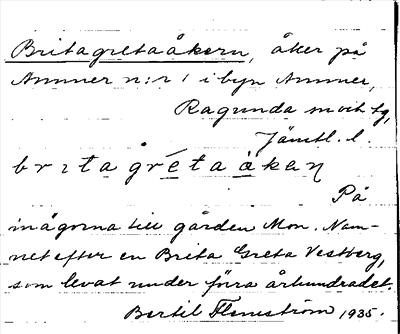 Britagretaåkern, åker på
Ammer n:r 1 i byn Ammer,
Ragunda sn och tg,
Jämtl. l.
britagrétaåkaɳ
På
inägorna till gården Mon. Nam-
net efter en Brita Greta Vestberg,
som levat under förra århundradet.
Bertil Flemström 1935.